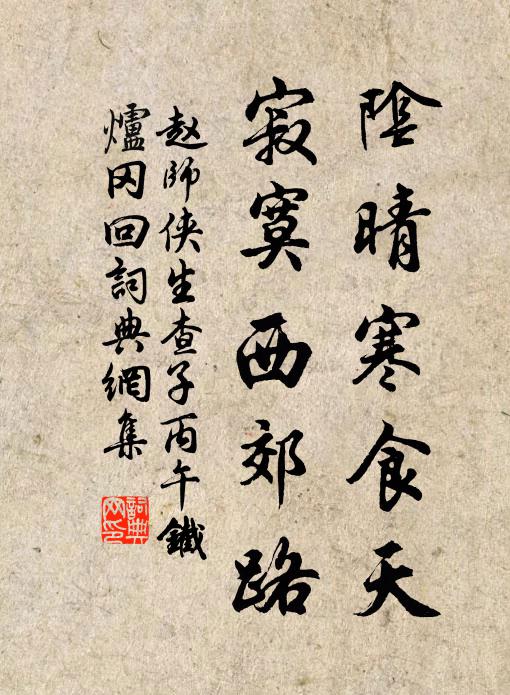 陰晴寒食天
寂寞西郊路
赵師侠生查子丙午鐵
爐冈回詞典網集
詞典網印